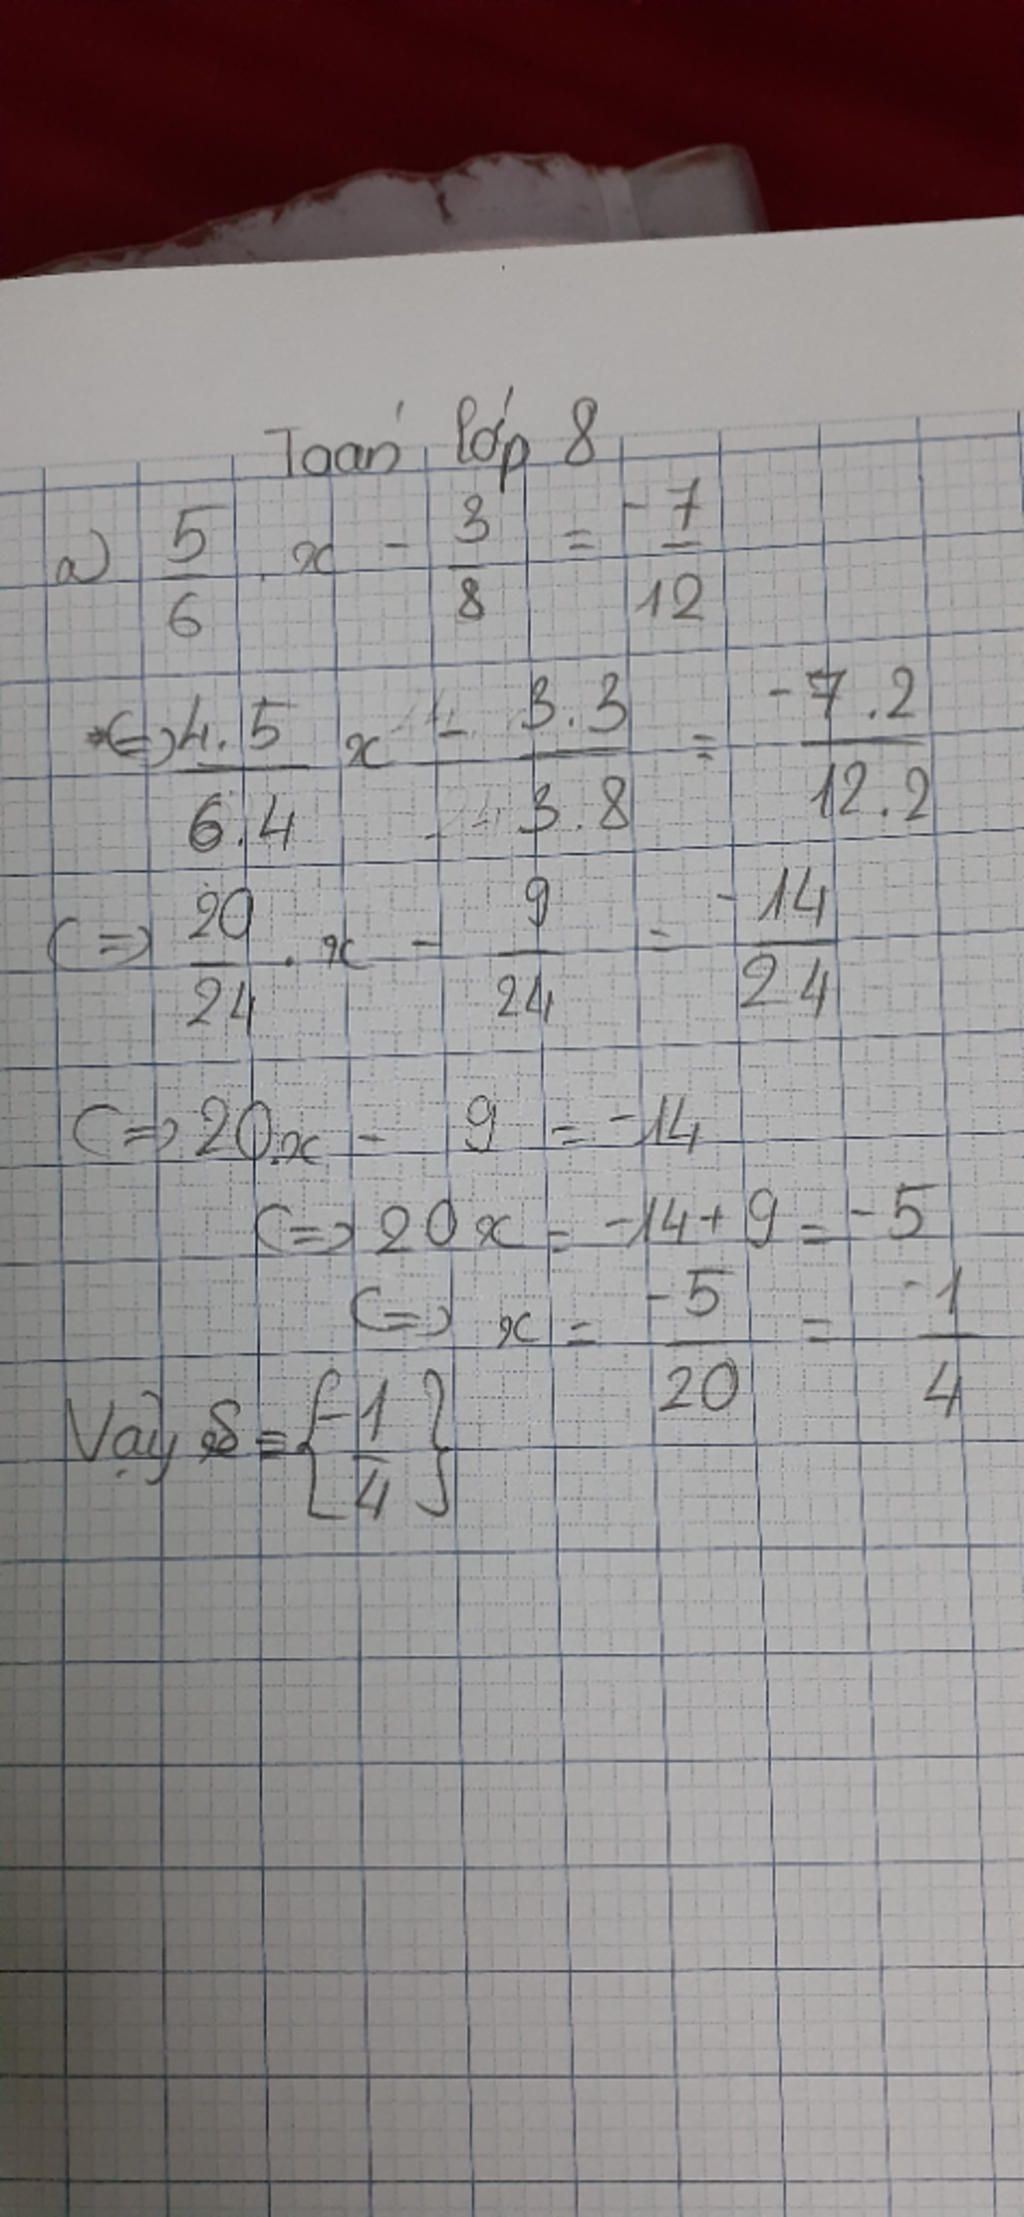 Toán lớp 8
a) 5/6 . x - 3/8 = -7/12
<=> 4.5/6.4 x - 3.3/3.8 = -7.2/12.2
<=> 20/24 . x - 9/24 = -14/24
<=> 20.x - 9 = -14
<=> 20x = -14+9 = -5
<=> x = -5/20 = -1/4
Vậy S = {-1/4}